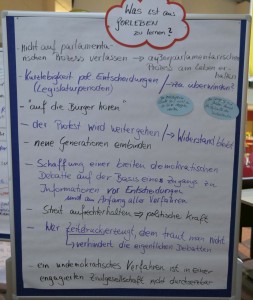 Was ist aus
GORLEBEN
zu lernen?
- Nicht auf parlamenta-
rischen Prozess verlassen → außerparlamentarischen
Prozess am Leben er-
halten
- Kurzlebigkeit pol. Entscheidungen /
(Legislaturperioden)
"auf die Bürger hören"
- der Protest wird weitergehen / → Widerstand bleibt
- neue Generationen einbinden
- Schaffung einer breiten demokratischen
Debatte auf der Basis eines Zugangs zu
Informationen vor Entscheidungen
und am Anfang aller Verfahren
- Streit aufrechterhalten → politische Kraft
- Wer Zeitdruck erzeugt, dem traut man nicht
verhindert die eigentlichen Debatten
ein undemokratisches Verfahren ist in einer
engagierten Zivilgesellschaft nicht durchsetzbar